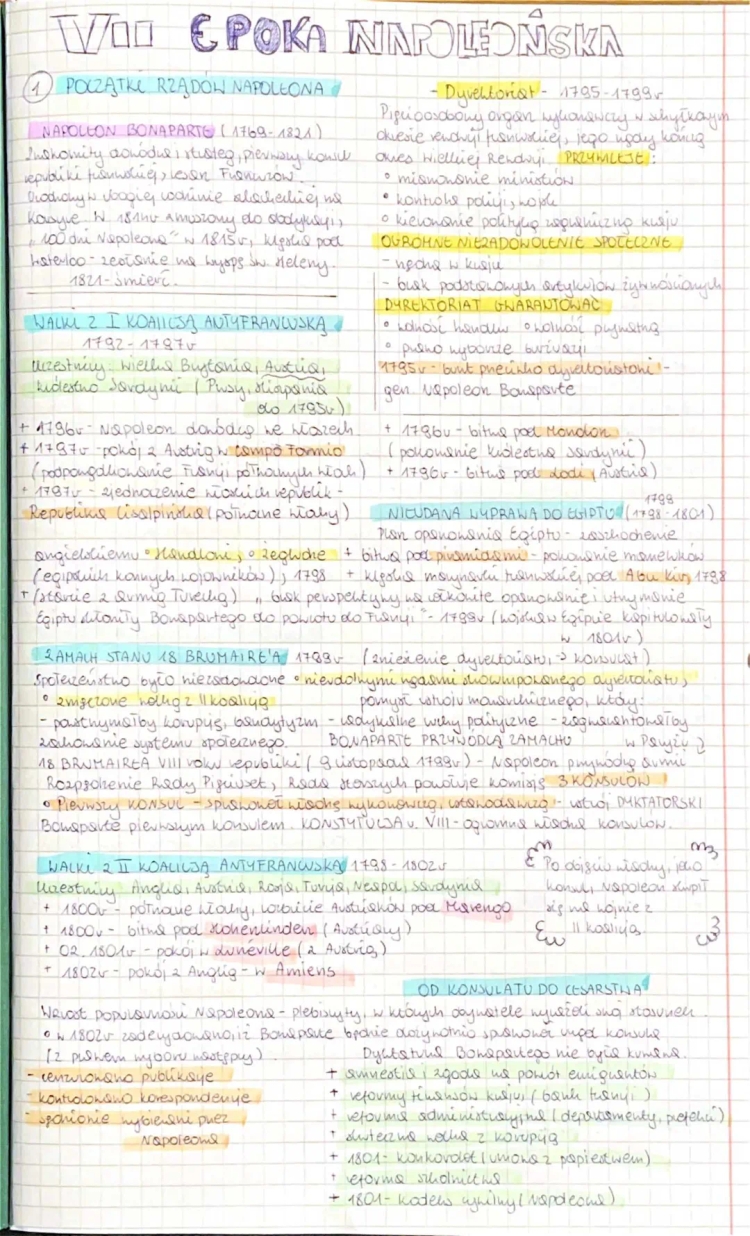 VII EPOKA NAPOLEOŃSKA
① POCZĄTKI RZĄDÓW NAPOLEONA
NAPOLEON BONAPARTE (1769-1821)
Znakomity dowódca i strateg, pierwszy konsul
republiki francuskiej, cesarz Francuzów.
Urodzony w ubogiej rodzinie szlacheckiej na
Korsyce. W 1814r zmuszony do abdykacji,
"100 dni Napoleona" w 1815r, klęska pod
Waterloo - zesłanie na wyspę św. Heleny.
1821 - śmierć.
- Dyrektoriat - 1795-1799r
Pięcioosobowy organ wykonawczy w schyłkowym
okresie rewolucji francuskiej, jego rządy kończą
okres Wielkiej Rewolucji. PRZYWILEJE:
• mianowanie ministrów
• kontrola policji, wojska
• kierowanie polityką zagraniczną kraju
OGROMNE NIEZADOWOLENIE SPOŁECZNE
- nędza w kraju
- brak podstawowych artykułów żywnościowych
DYREKTORIAT GWARANTOWAĆ
• wolność handlu • wolność prywatną
• prawo wyborcze burżuazji
1795r - bunt przeciwko dyrektoriatowi -
gen. Napoleon Bonaparte
WALKI Z I KOALICJĄ ANTYFRANCUSKĄ
1792 - 1797r
Uczestnicy: Wielka Brytania, Austria,
Królestwo Sardynii (Prusy, Hiszpania
do 1795r)
+ 1796r - Napoleon dowódcą we Włoszech.
+ 1797r - pokój z Austrią w Campo Formio
(podporządkowanie Francji północnych Włoch)
+ 1797r - zjednoczenie włoskich republik -
Republika Cisalpińska (północne Włochy)
+ 1796r - bitwa pod Mondovi
(pokonanie królestwa Sardynii)
+ 1796r - bitwa pod Lodi (Austria)
NIEUDANA WYPRAWA DO EGIPTU (1798-1801)
1798
Plan opanowania Egiptu - zaszkodzenie
angielskiemu • Handlowi, • żegludze + bitwa pod piramidami - pokonanie mameluków
(egipskich konnych wojowników), 1798 + klęska marynarki francuskiej pod Abu Kir, 1798
+ (starcie z armią Turecką) "brak perspektywy na całkowite opanowanie i utrzymanie
Egiptu skłoniły Bonapartego do powrotu do Francji" - 1799r (wojska w Egipcie kapitulowały
w 1801r)
ZAMACH STANU 18 BRUMAIRE'A 1799r (zniesienie dyrektoriatu, → konsulat)
Społeczeństwo było niezadowolone • nieudolnymi rządami skorumpowanego dyrektoriatu,
• zmęczone walką z II koalicją pomysł ustroju monarchicznego, który:
- powstrzymałby korupcję, bandytyzm - radykalne ruchy polityczne - zagwarantowałby
zachowanie systemu społecznego. BONAPARTE PRZYWÓDCĄ ZAMACHU w Paryżu
18 BRUMAIRE'A VIII roku republiki (9 listopad 1799r) - Napoleon przywódcą armii
Rozpędzenie Rady Pięciuset, Rada starszych powołuje komisję 3 KONSULÓW
• Pierwszy KONSUL - sprawował władzę wykonawczą, ustawodawczą - ustrój DYKTATORSKI
Bonaparte pierwszym konsulem. KONSTYTUCJA r. VIII - ogromna władza konsulów.
WALKI Z II KOALICJĄ ANTYFRANCUSKĄ 1798-1802r
Uczestnicy Anglia, Austria, Rosja, Turcja, Neapol, Sardynia
+ 1800r - północne Włochy, rozbicie Austriaków pod Marengo
+ 1800r - bitwa pod Hohenlinden (Austriacy)
+ 02. 1801r - pokój w Lunéville (z Austrią)
+ 1802r - pokój z Anglią - w Amiens
Po dojściu władzy, jako
konsul, Napoleon skupił
się na wojnie z
II koalicją
OD KONSULATU DO CESARSTWA
Wzrost popularności Napoleona - plebiscyty, w których obywatele wyrażali swój stosunek.
• w 1802r zadecydowano, iż Bonaparte będzie dożywotnio sprawował urząd konsula
(z prawem wyboru następcy). Dyktatura Bonapartego nie była krwawa.
- cenzurowano publikacje
- kontrolowano korespondencje
- sędziowie wybierani przez
Napoleona
+ amnestia i zgoda na powrót emigrantów
+ reformy finansów kraju (bank Francji)
+ reforma administracyjna (departamenty, prefekci)
+ skuteczna walka z korupcją
+ 1801 - konkordat (umowa z papiestwem)
+ reforma szkolnictwa
+ 1801 - kodeks cywilny (Napoleona)